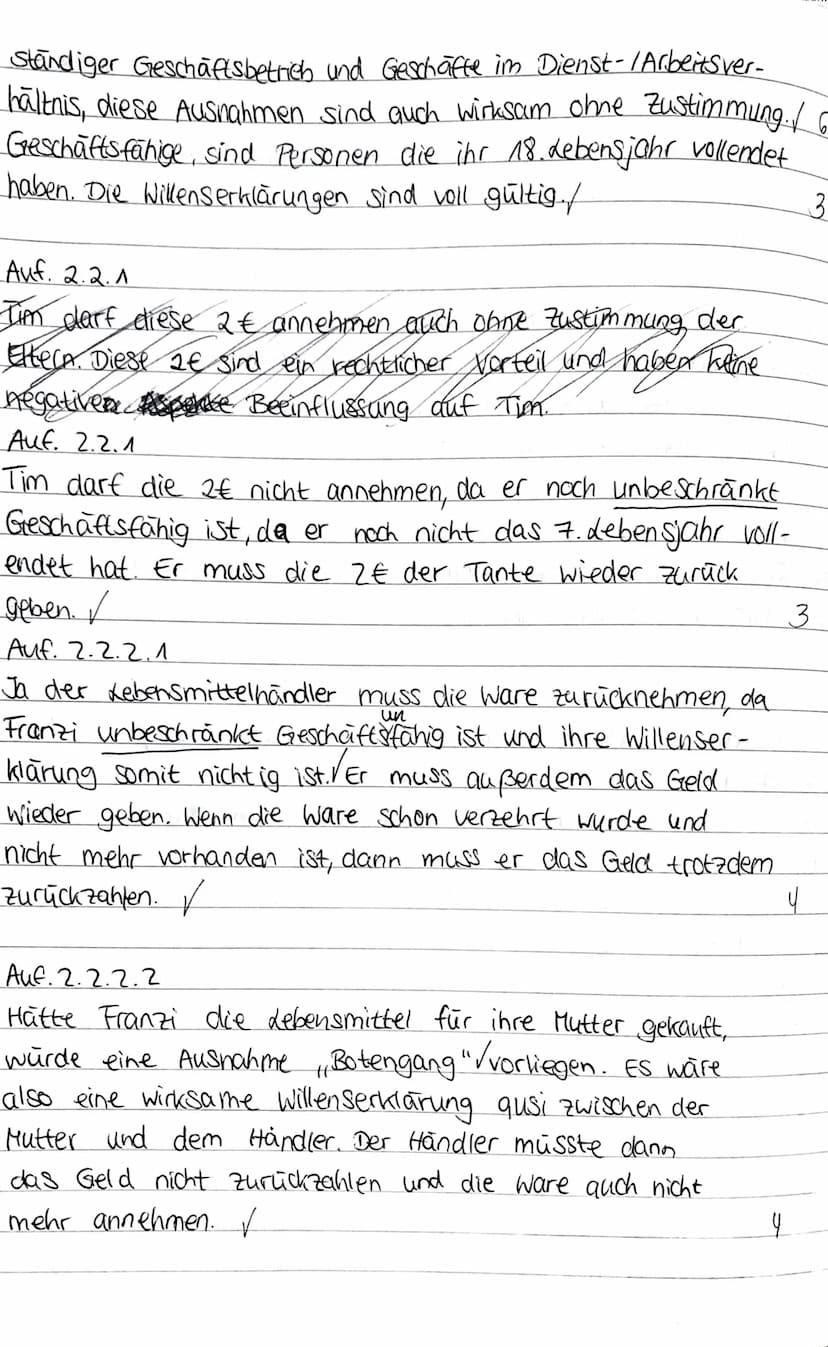 ständiger Geschäftsbetrieb und Geschäfte im Dienst-/Arbeitsver-
hältnis, diese Ausnahmen sind auch wirksam ohne Zustimmung. √ 6
Geschäftsfähige, sind Personen die ihr 18. Lebensjahr vollendet
haben. Die Willenserklärungen sind voll gültig. √ 3
Auf. 2.2.1
Tim darf diese 2€ annehmen auch ohne Zustimmung der
Eltern. Diese 2€ sind ein rechtlicher Vorteil und haben keine
negativen Aspekte Beeinflussung auf Tim.
Auf. 2.2.1
Tim darf die 2€ nicht annehmen, da er noch unbeschränkt
Geschäftsfähig ist, da er noch nicht das 7. Lebensjahr voll-
endet hat. Er muss die 2€ der Tante wieder zurück
geben. √ 3
Auf. 2.2.2.1
Ja der Lebensmittelhändler muss die Ware zurücknehmen, da
un
Franzi unbeschränkt Geschäftsfähig ist und ihre Willenser-
klärung somit nichtig ist. √ Er muss außerdem das Geld
wieder geben. Wenn die Ware schon verzehrt wurde und
nicht mehr vorhanden ist, dann muss er das Geld trotzdem
zurückzahlen. √ 4
Auf. 2.2.2.2
Hätte Franzi die Lebensmittel für ihre Mutter gekauft,
würde eine Ausnahme „Botengang" √ vorliegen. Es wäre
also eine wirksame Willenserklärung qusi zwischen der
Mutter und dem Händler. Der Händler müsste dann
das Geld nicht zurückzahlen und die Ware auch nicht
mehr annehmen. √ 4